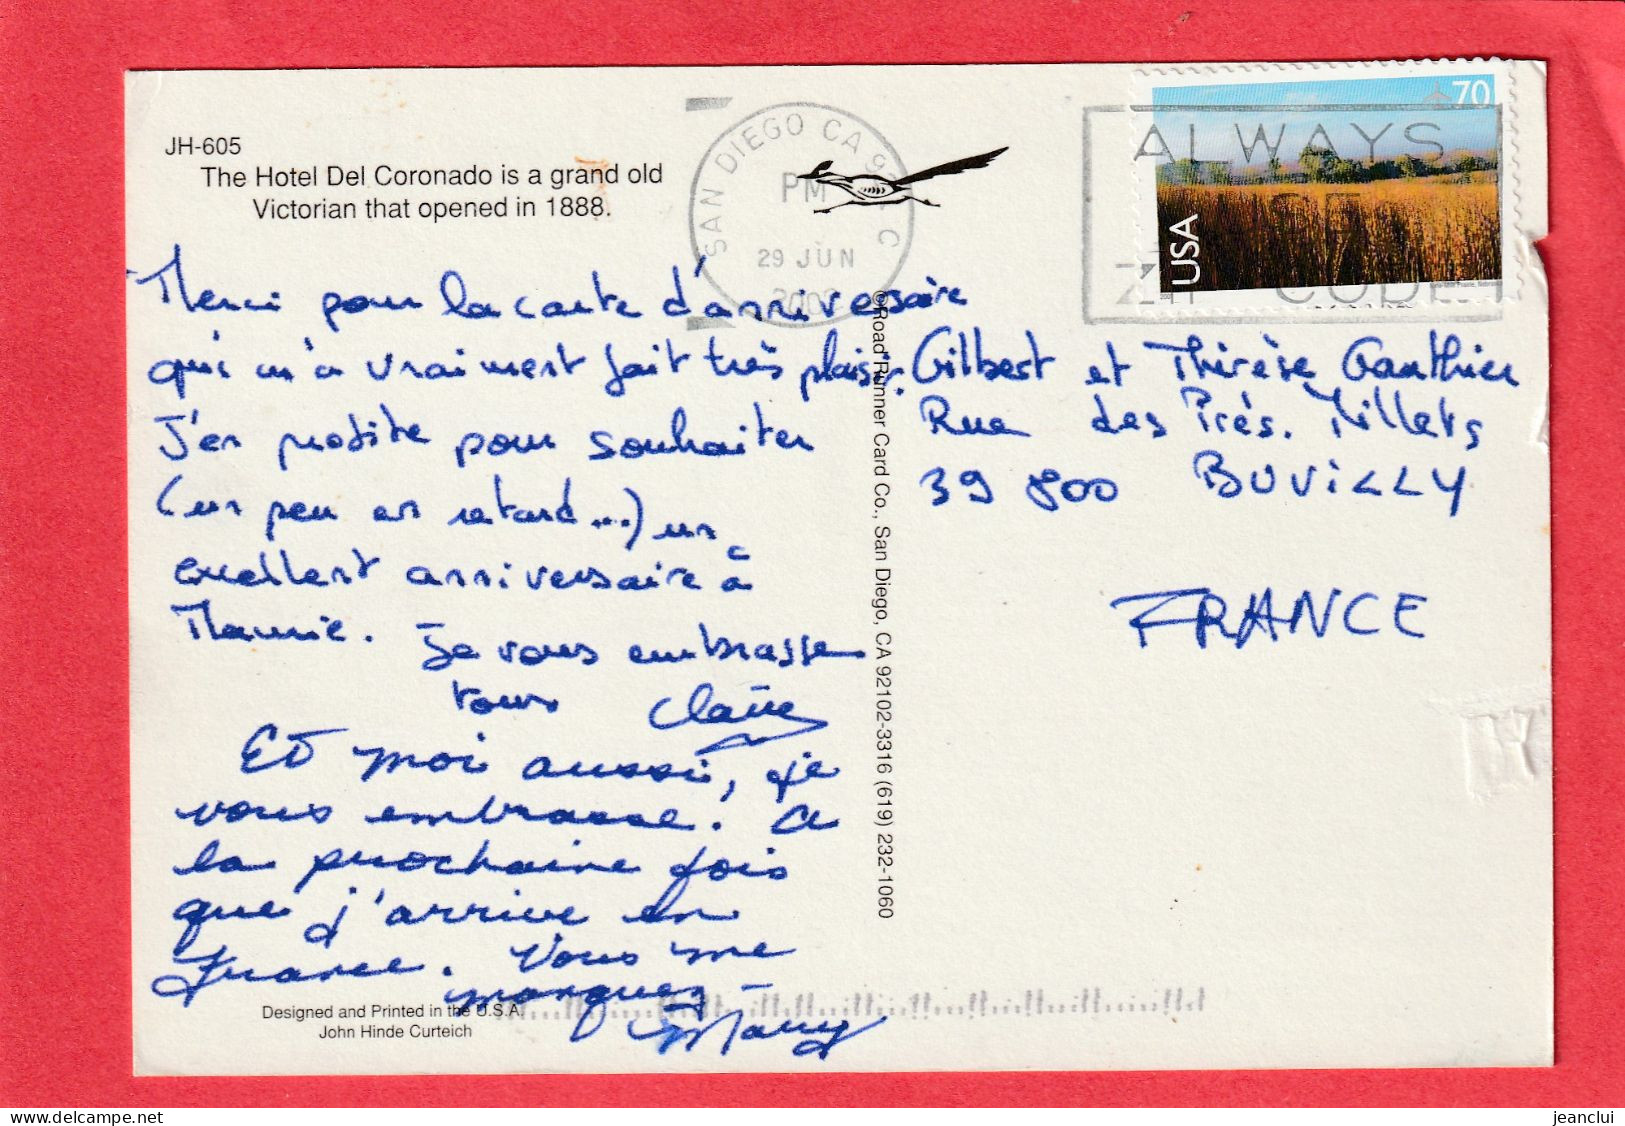 JH-605
The Hotel Del Coronado is a grand old
Victorian that opened in 1888.
SAN DIEGO CA
PM
29 JUN
70
USA
ALWAYS
ZIP CODE
Merci pour la carte d'anniversaire
qui m'a vraiment fait très plaisir.
J'en profite pour souhaiter
(un peu en retard...) un
excellent anniversaire à
Mamie. Je vous embrasse
tous Claire
Et moi aussi, je
vous embrasse! A
la prochaine fois
que j'arrive en
France. Vous me
manquez -
Mary
©Road Runner Card Co., San Diego, CA 92102-3316 (619) 232-1060
Gilbert et Thérèse Gauthier
Rue des Prés. Millets
39 800 BUVILLY
FRANCE
Designed and Printed in the U.S.A.
John Hinde Curteich
Delcampe.net
jeanclui